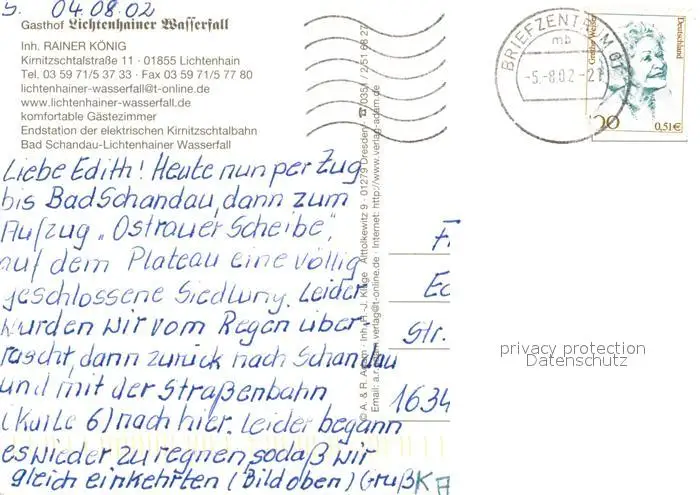 S. 04.08.02
Gasthof Lichtenhainer Wasserfall
Inh. RAINER KÖNIG
Kirnitzschtalstraße 11 · 01855 Lichtenhain
Tel. 03 59 71/5 37 33 · Fax 03 59 71/5 77 80
lichtenhainer-wasserfall@t-online.de
www.lichtenhainer-wasserfall.de
komfortable Gästezimmer
Endstation der elektrischen Kirnitzschtalbahn
Bad Schandau-Lichtenhainer Wasserfall
Liebe Edith! Heute nun per Zug
bis Bad Schandau, dann zum
Aufzug „Ostrauer Scheibe",
auf dem Plateau eine völlig
geschlossene Siedlung. Leider
wurden wir vom Regen über-
rascht, dann zurück nach Schandau
und mit der Straßenbahn
(Karte 6) nach hier. Leider begann
es wieder zu regnen, sodaß wir
gleich einkehrten (Bild oben) Gruß K
© A. & R. Adam · Inh. H.-J. Kluge · Alttolkewitz 9 · 01279 Dresden · ☎ 0351 / 2 51 66 27
Email: a.r.adam.verlag@t-online.de · Internet: http://www.verlag-adam.de
BRIEFZENTRUM 01
mb
-5.-8.02-21
Grethe Weiser
Deutschland
100
0,51€
F
Ec
Str.
1634
privacy protection
Datenschutz